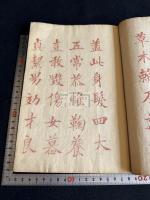 草木賴
蓋此身髮四大
五常恭惟鞠養
豈敢毀傷女慕
貞絜男効才良